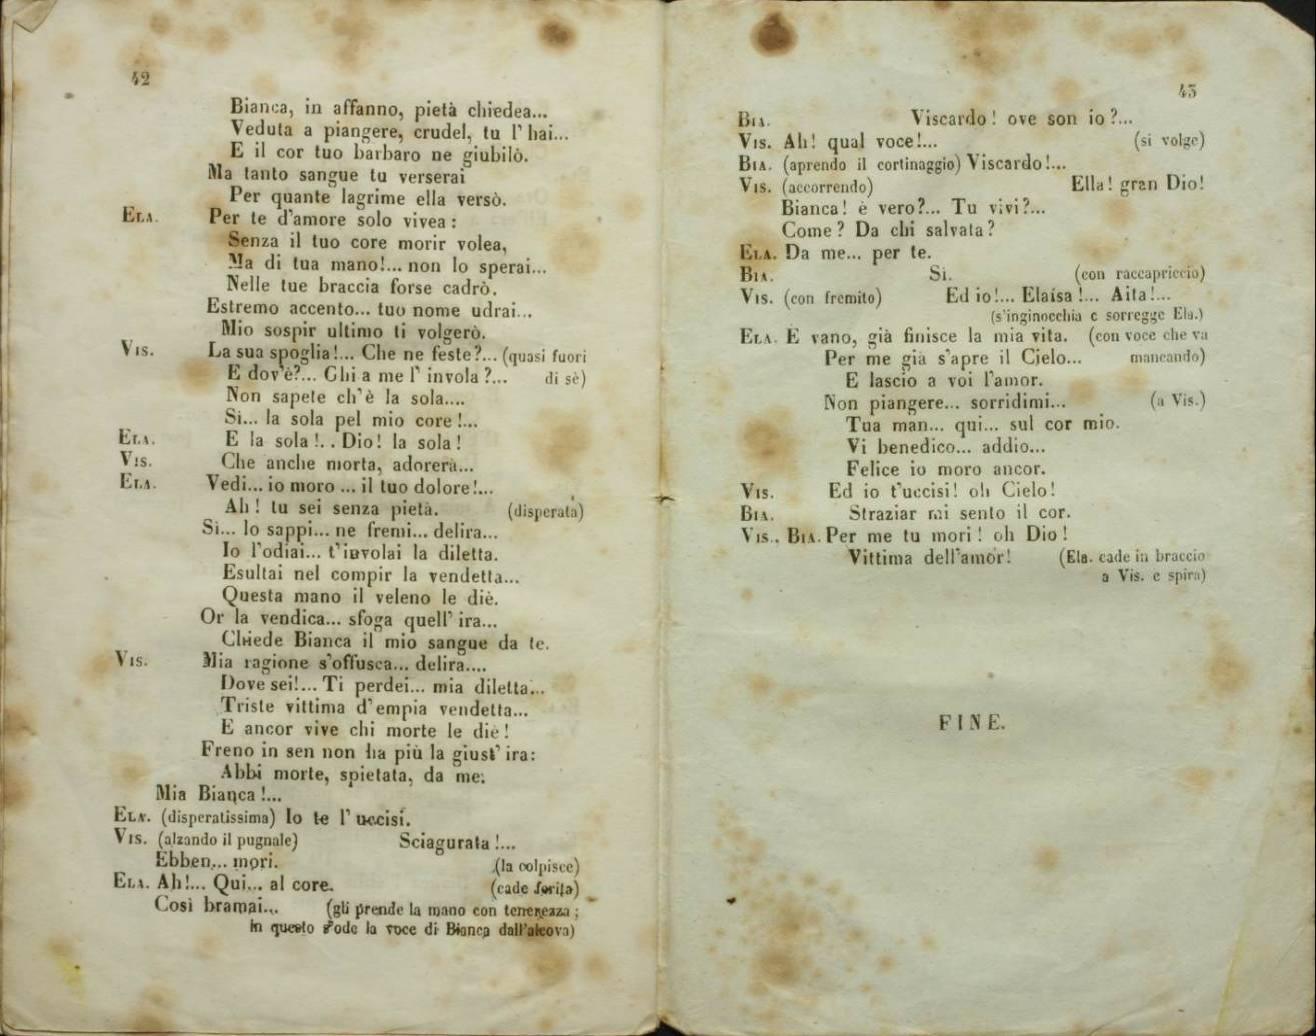 42
Bianca, in affanno, pietà chiedea...
Veduta a piangere, crudel, tu l' hai...
E il cor tuo barbaro ne giubilò.
Ma tanto sangue tu verserai
Per quante lagrime ella versò.
ELA. Per te d'amore solo vivea:
Senza il tuo core morir volea,
Ma di tua mano!... non lo sperai...
Nelle tue braccia forse cadrò.
Estremo accento... tuo nome udrai...
Mio sospir ultimo ti volgerò.
VIS. La sua spoglia!... Che ne feste?... (quasi fuori
E dov'è?... Chi a me l' invola?... di sè)
Non sapete ch'è la sola....
Sì... la sola pel mio core!...
ELA. E la sola!... Dio! la sola!
VIS. Che anche morta, adorerà...
ELA. Vedi... io moro... il tuo dolore!...
Ah! tu sei senza pietà. (disperata)
Sì... lo sappi... ne fremi... delira...
Io l'odiai... t'involai la diletta.
Esultai nel compir la vendetta...
Questa mano il veleno le diè.
Or la vendica... sfoga quell' ira...
Chiede Bianca il mio sangue da te.
VIS. Mia ragione s'offusca... delira....
Dove sei!... Ti perdei... mia diletta...
Triste vittima d'empia vendetta...
E ancor vive chi morte le diè!
Freno in sen non ha più la giust' ira:
Abbi morte, spietata, da me.
Mia Bianca!...
ELA. (disperatissima) Io te l' uccisi.
VIS. (alzando il pugnale) Sciagurata!...
Ebben... mori. (la colpisce)
ELA. Ah!... Qui... al core. (cade ferita)
Così bramai... (gli prende la mano con tenerezza;
in questo s'ode la voce di Bianca dall'alcova)
43
BIA. Viscardo! ove son io?...
VIS. Ah! qual voce!... (si volge)
BIA. (aprendo il cortinaggio) Viscardo!...
VIS. (accorrendo) Ella! gran Dio!
Bianca! è vero?... Tu vivi?...
Come? Da chi salvata?
ELA. Da me... per te.
BIA. Sì. (con raccapriccio)
VIS. (con fremito) Ed io!... Elaísa!... Aita!...
(s'inginocchia e sorregge Ela.)
ELA. È vano, già finisce la mia vita. (con voce che va
Per me già s'apre il Cielo... mancando)
E lascio a voi l'amor.
Non piangere... sorridimi... (a Vis.)
Tua man... qui... sul cor mio.
Vi benedico... addio...
Felice io moro ancor.
VIS. Ed io t'uccisi! oh Cielo!
BIA. Straziar mi sento il cor.
VIS., BIA. Per me tu mori! oh Dio!
Vittima dell'amor! (Ela. cade in braccio
a Vis. e spira)
FINE.